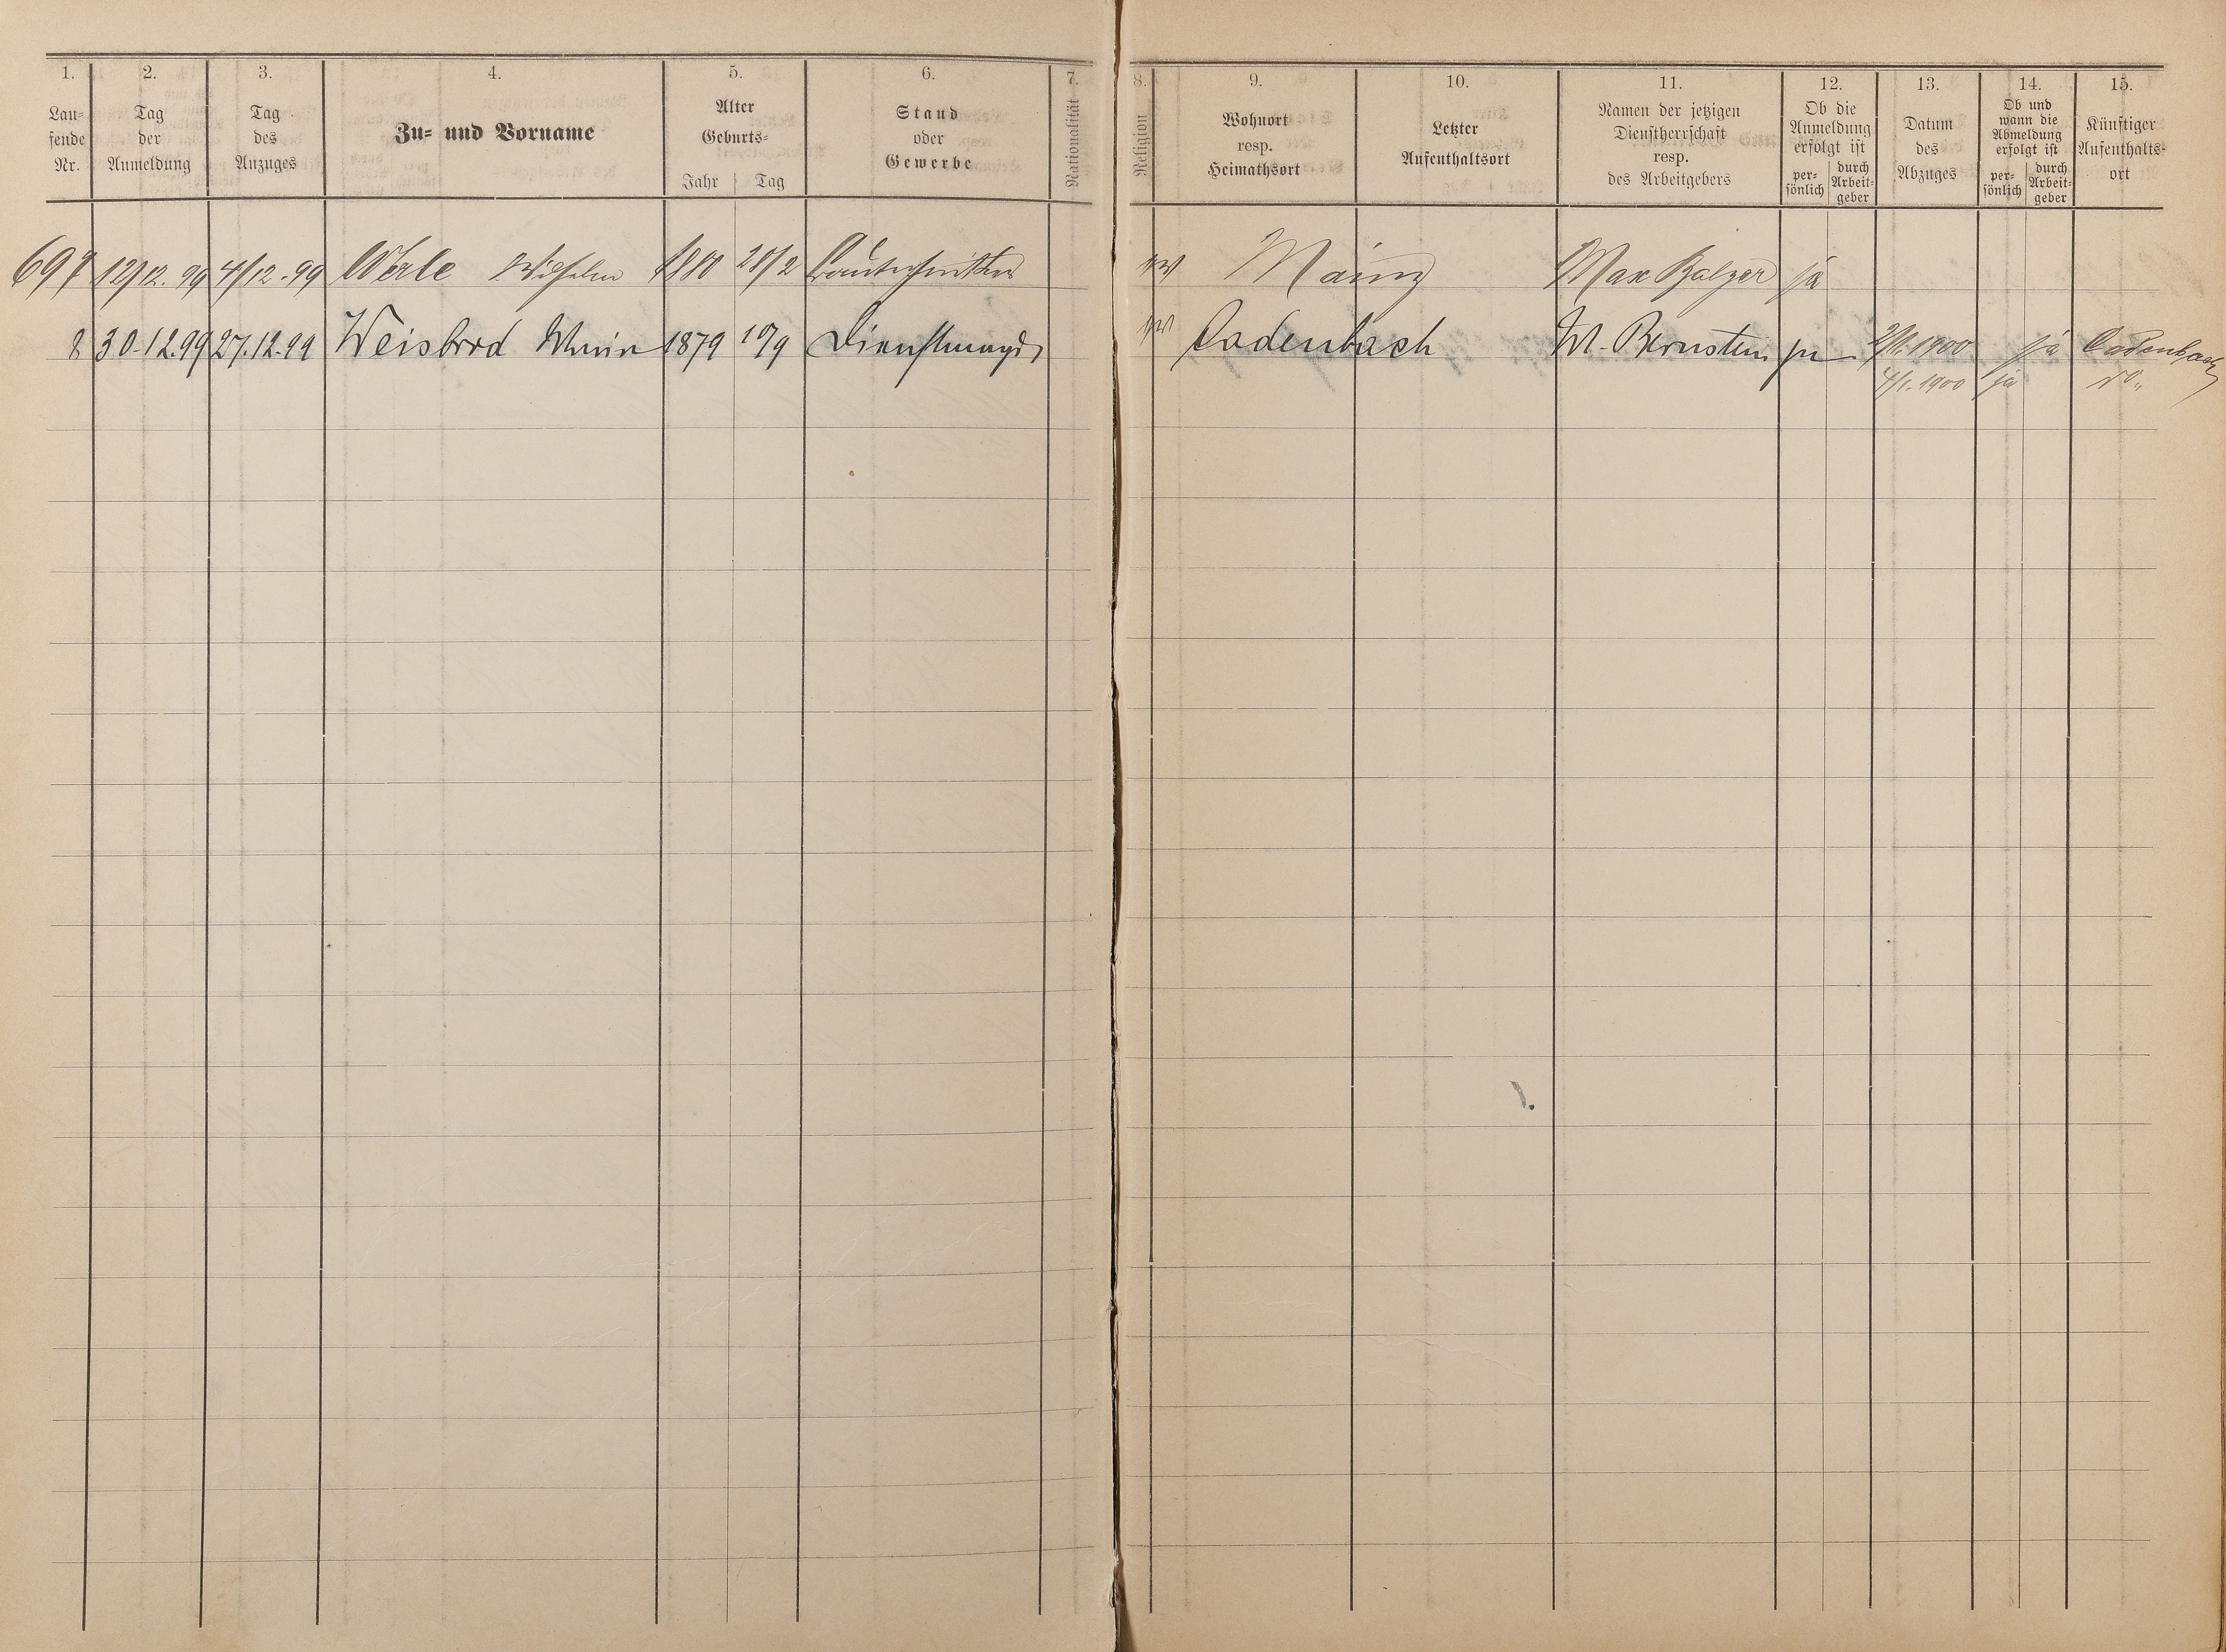 1. 2. 3. 4. 5. 6. 7. 8. 9. 10. 11. 12. 13. 14. 15.
Lau-
fende
Nr.
Tag
der
Anmeldung
Tag
des
Anzuges
Zu- und Vorname
Alter
Geburts-
Jahr Tag
Stand
oder
Gewerbe
Nationalität
Religion
Wohnort
resp.
Heimathsort
Letzter
Aufenthaltsort
Namen der jetzigen
Dienstherrschaft
resp.
des Arbeitgebers
Ob die
Anmeldung
erfolgt ist
per-
sönlich
durch
Arbeit-
geber
Datum
des
Abzuges
Ob und
wann die
Abmeldung
erfolgt ist
per-
sönlich
durch
Arbeit-
geber
Künftiger
Aufenthalts-
ort
697 12/12.99 4/12.99 Werle Wilhelm 1880 28/2 Mainz Max Balzer ja
8 30.12.99 27.12.99 Weisbrod 1879 10/9 Dienstmagd Cadenbach W. Bernstein ja 2/1.1900 ja Cadenbach
4/1.1900 ja do.